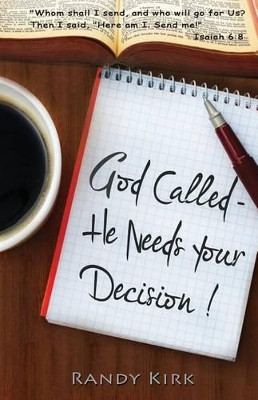 "Whom shall I send, and who will go for Us?
Then I said, "Here am I. Send me!"
Isaiah 6:8
God Called -
He Needs your
Decision !
RANDY KIRK